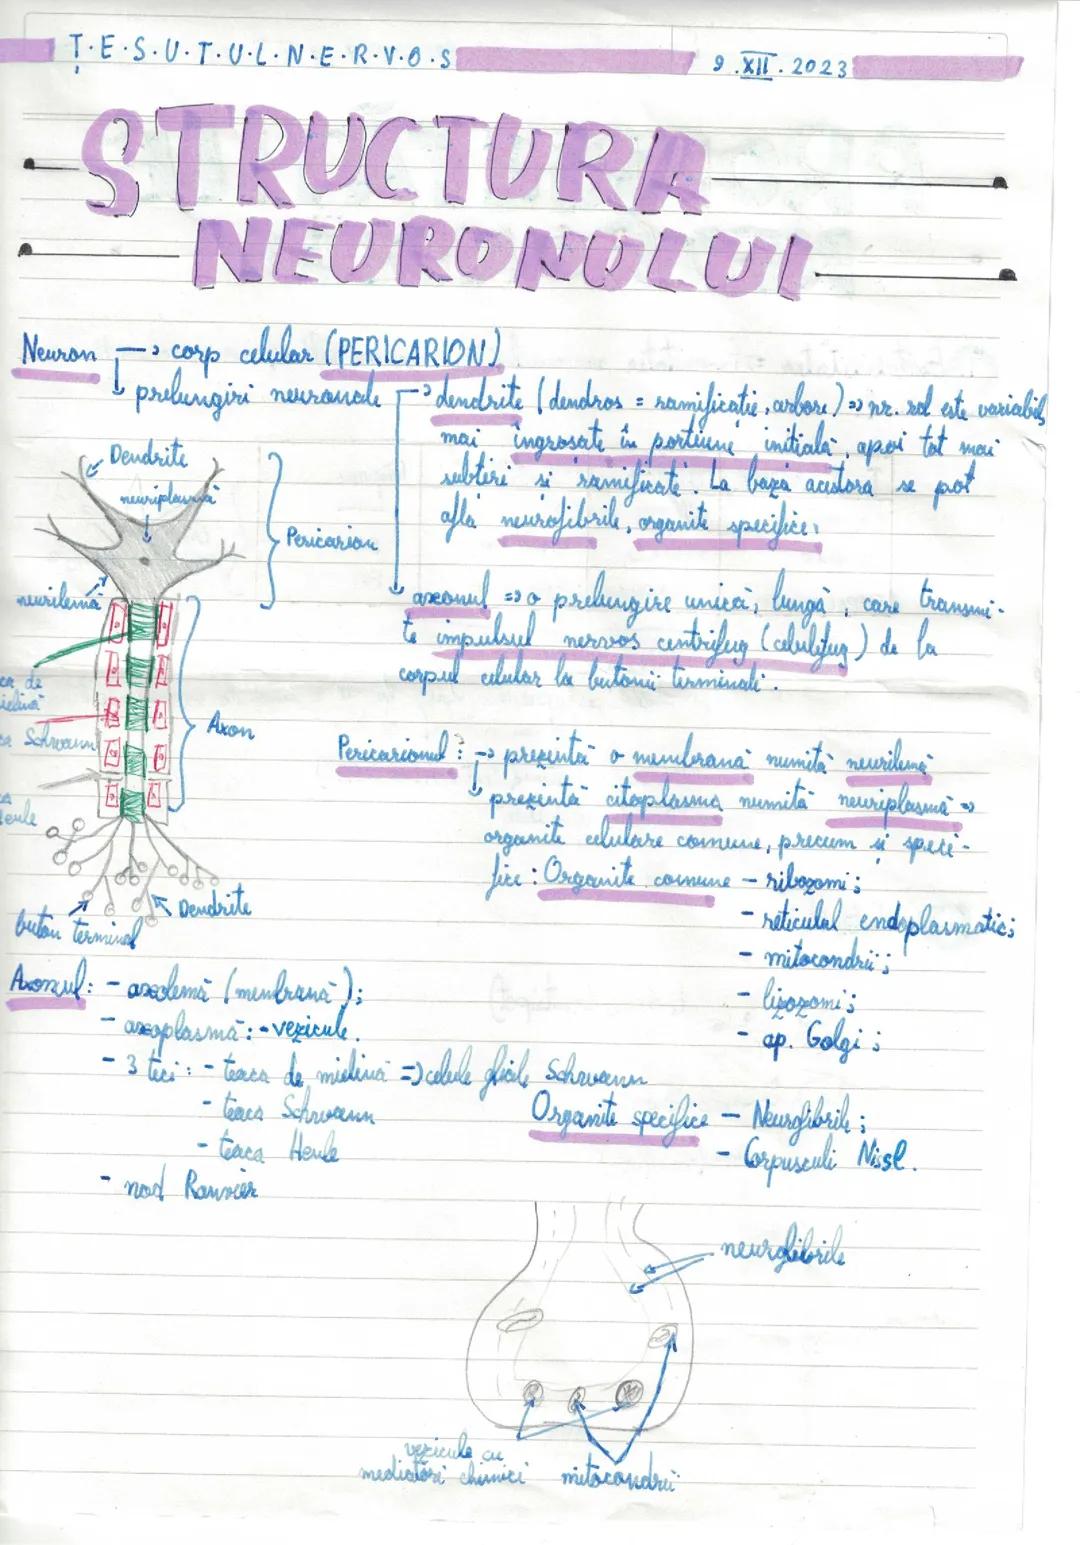 Ț.E.S.U.T.U.L.N.E.R.V.O.S
9.XII.2023
STRUCTURA
NEURONULUI
Neuron → corp celular (PERICARION)
prelungiri neuronale → dendrite (dendros = ramificație, arbore) => nr. rol este variabil,
mai îngroșate în porțiune inițială, apoi tot mai
subțiri și ramificate. La baza acestora se pot
afla neurofibrile, organite specifice.
axonul => o prelungire unică, lungă, care transmi-
te impulsul nervos centrifug (celulifug) de la
corpul celular la butonii terminali.
Dendrite
neuriplasmă
Pericarion
neurilemă
ca de
ielină
ca Schwann
Axon
ca
Henle
Dendrite
buton terminal
Pericarionul: → prezintă o membrană numită neurilemă
prezintă citoplasma numită neuriplasmă =>
organite celulare comune, precum și speci-
fice: Organite comune - ribozomi;
- reticulul endoplasmatic;
- mitocondrii;
- lizozomi;
- ap. Golgi;
Organite specifice - Neurofibrile;
- Corpusculi Nissl.
Axonul: - axolemă (membrană);
- axoplasmă: - vezicule.
- 3 teci: - teaca de mielină => celule gliale Schwann
- teaca Schwann
- teaca Henle
- nod Ranvier
neurofibrile
vezicule cu
mediatori chimici
mitocondrii